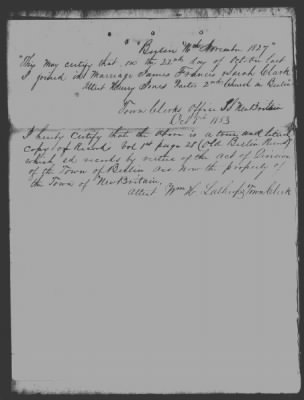 Berlin 16th November 1827
"This may certify that on the 22nd day of October last
I joined in Marriage James Francis & Sarah Clark
Attest Henry Jones Pastor 2nd Church in Berlin
Town Clerks Office New Britain
Oct 1853
I hereby certify that the above is a true and literal
copy of Records Vol 1st page 28 (Old Berlin Records)
which records by virtue of the act of Division
of the Town of Berlin are now the property of
the Town of New Britain.
Attest Wm H. Town Clerk